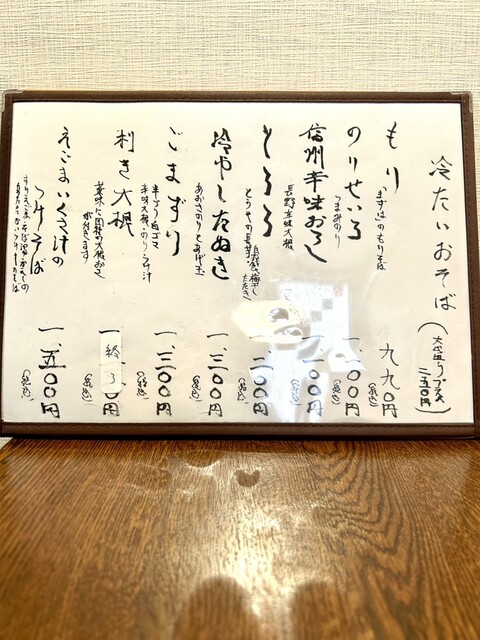 冷たいおそば
(大盛りプラス
二五〇円)
もり
まずはのもりそば
九九〇円
(税込)
のりせいろ
うまみのり
一、一〇〇円
(税込)
信州辛味おろし
長野辛味大根
一〇〇円
(税込)
とろろ
とうやの長芋・
たたき
二〇〇円
(税込)
冷やしたぬき
あおさのりとあげ玉
一、三〇〇円
(税込)
ごまずり
半ずり白ゴマ
辛味大根・のり・汁
一、三〇〇円
(税込)
利き大根
薬味に四種の大根おろし
が付きます
終了
円
(税込)
えごまいくさ汁の
つけそば
一、五〇〇円
(税込)